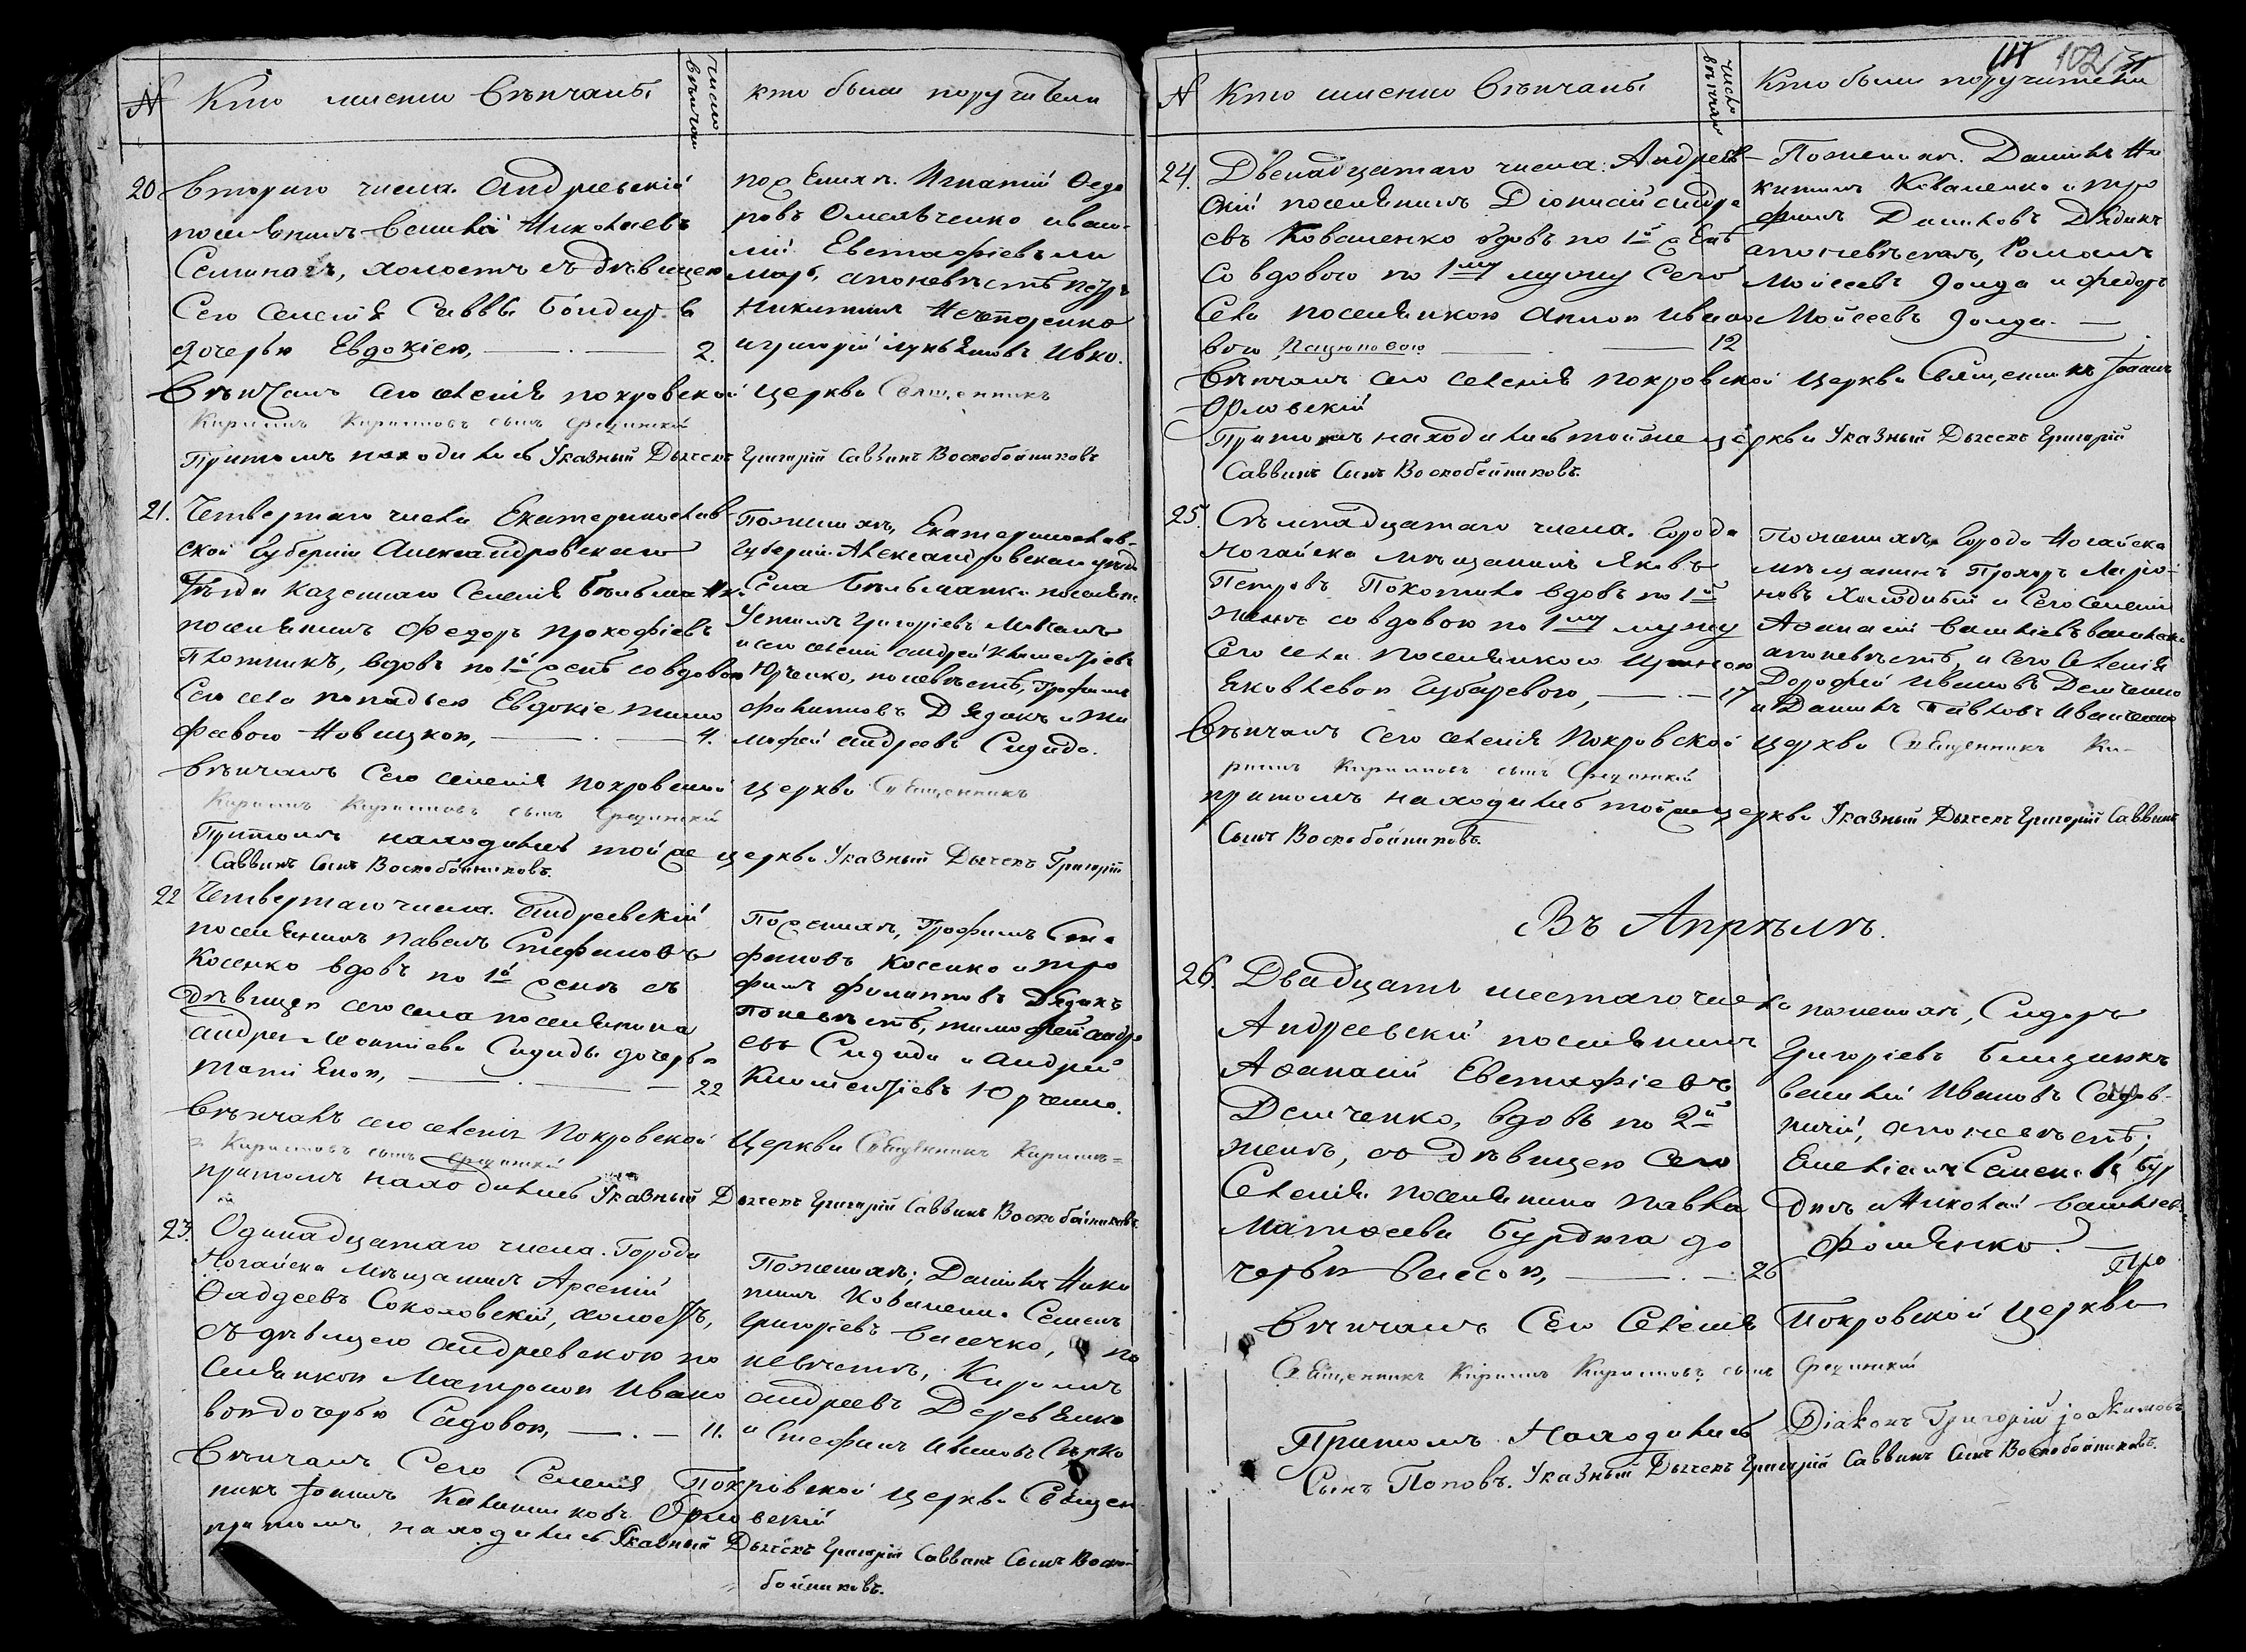 № Кто имено Венчаны число венчан кто были поручители
20 Втораго числа. Андреевский
поселянинъ Василий Николаевъ
холостъ съ девицею
Сего Селения Саввы
дочерью Евдокиею, 2.
по Женихе. Игнатий Федо
ровъ Омельченко
Евстафиевъ
по невесте
Никитинъ
и Григорий Ивко.
Венчалъ сего селения покровской церкви Священникъ
Кириллъ Кирилловъ сынъ Срединский
Притомъ находились Указный Дьячекъ Григорий Саввинъ Воскобойниковъ
21. Четвертаго числа Екатеринослав
ской Губернии Александровскаго
уезда казеннаго Селения Бельманки
поселянинъ Федоръ Прокофиевъ
Плотникъ, вдовъ по 1й жене со вдовою
Сего села попадьею Евдокие Тимо
феевою Новицкою, 4.
По женихе, Екатеринослав.
Губернии Александровскаго уезда
Села Бельманки поселяне
Устинъ Григориевъ
и сего селения Андрей Климентиевъ
Юрченко, по невесте, Трофимъ
Филиповъ Дядикъ и Ти
мофей Андреевъ Сидида.
Венчалъ Сего селения Покровской церкви Священникъ
Кириллъ Кирилловъ сынъ Срединский
Притомъ находились той же церкви Указный Дьячекъ Григорий
Саввинъ Сынъ Воскобойниковъ.
22 Четвертаго числа. Андреевский
поселянинъ Павелъ Стефановъ
Косенко вдовъ по 1й жене съ
девицею сего села поселянина
Андрея Сидиды дочерью
Татияною, 22
По женихе, Трофимъ Сте
фановъ Косенко и Тро
фимъ Филипповъ Дядикъ
По невесте, Тимофей Андре
евъ Сидида и Андрей
Климентиевъ Юрченко.
Венчалъ сего селения Покровской Церкви Священникъ Кириллъ
Кирилловъ сынъ Срединский
притомъ находились Указный Дьячекъ Григорий Саввинъ Воскобойниковъ
23. Одинадцатаго числа. Города
Ногайска мещанинъ Арсений
Фаддеевъ Соколовский, холостъ,
съ девицею андреевскою по
селянкою Матроною Ивано
вою дочерью Садовою, 11.
По женихе; Даниилъ Ники
тинъ Коваленко Семенъ
Григориевъ Величко, по
невесте, Кириллъ
Андреевъ Деревянко
и Стефанъ Ивановъ
Венчалъ Сего Селения Покровской церкви Священ
никъ Иоаннъ Калинниковъ Орловский
притомъ находились Указный Дьячекъ Григорий Саввинъ Сынъ Воско
бойниковъ.
102
№ Кто именно Венчаны число венчан Кто были поручители
24. Двенадцатаго числа. Андреев
ский поселянинъ Дионисий Андре
евъ Коваленко вдовъ по 1й жене
Со вдовою по 1му мужу Сего
Села поселянкою Анною Ивано
вою Пацюковою 12
По женихе. Даниилъ Ни
китинъ Коваленко и Тро
фимъ Дядикъ
а по невесте, Романъ
Моисеевъ Донда и Федоръ
Мойсеевъ Донда.
Венчалъ сего селения покровской церкви Священникъ Иоаннъ
Орловский
Притомъ находились той же церкви Указный Дьячекъ Григорий
Саввинъ Сынъ Воскобойниковъ.
25. Семнадцатаго числа. Города
Ногайска мещанинъ Яковъ
Петровъ Покотило вдовъ по 1й
жене со вдовою по 1му мужу
Сего села поселянкою Ириною
Яковлевою Губаревою, 17
По женихе Города Ногайска
мещанинъ Прохоръ Ларио
новъ Холодный и Сего Селения
Афанасий Васильевъ
а по невесте, и сего Селения
Дорофей Ивановъ Демченко
и Даниилъ Павловъ Иванченко
Венчалъ Сего селения Покровской церкви Священникъ Ки-
риллъ Кирилловъ сынъ Срединский
притомъ находились той же церкви Указный Дьячекъ Григорий Саввинъ
Сынъ Воскобойниковъ.
Въ Апрѣлѣ.
26. Двадцать шестаго числа
Андреевский поселянинъ
Афанасий Евстафиевъ
Демченко, вдовъ по 2й
жене, съ девицею Сего
Селения поселянина Павла
Матфеева Бурдюга до
черью Васою, 26
по женихе, Сидоръ
Григориевъ Близнюкъ
Василий Ивановъ Садов
ничий, а по невесте;
Емелианъ Семеновъ Бур
дюгъ и Николай Васильевъ
Фоменко.
Венчалъ Сего Селения Покровской Церкви
Священникъ Кириллъ Кирилловъ сынъ Срединский
Притомъ Находились Диаконъ Григорий Иоакимовъ
Сынъ Поповъ. Указный Дьячекъ Григорий Саввинъ Сынъ Воскобойниковъ.